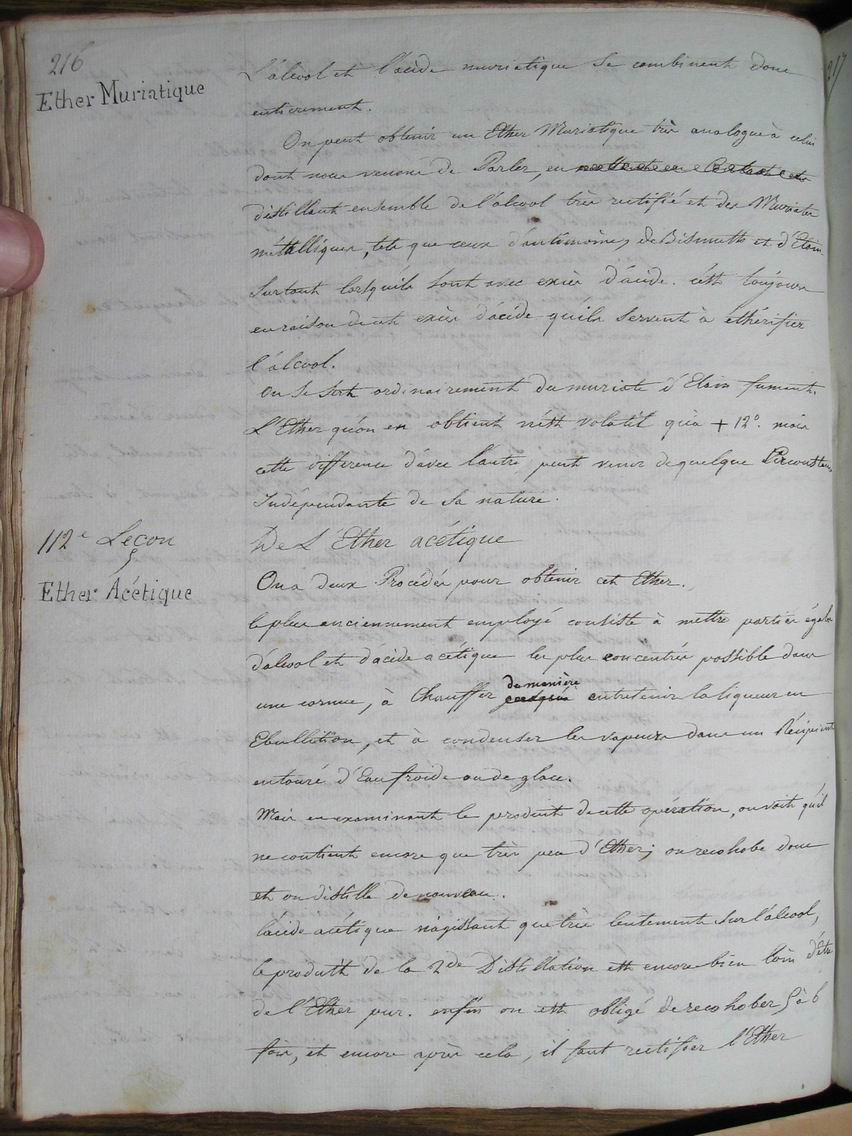 216
217
Ether Muriatique
L'álcool et l'ácide muriatique se combinent donc
entierement.
On peut obtenir un Ether Muriatique très analogue à celui
dont nous venons de Parler, en
distillant ensemble de l'álcool très rectifié et des Muriates
métalliques, tels que ceux d'antimoine, de Bismuth et d'Etain
Surtout lorsqu'ils sont avec excès d'ácide. c'est toujours
en raison de cet excès d'ácide qu'ils servent à éthérifier
l'álcool.
On se sert ordinairement du muriate d'Etain fumant.
L'Ether qu'on en obtient n'est volatil qu'à + 12°. mais
cette difference d'avec l'autre peut venir de quelque Circonstance
Indépendante de sa nature.
112e Leçon
De L'Ether acétique
Ether Acétique
On a deux Procédés pour obtenir cet Ether.
le plus anciennement employé consiste à mettre parties égales
d'álcool et d'ácide acétique le plus concentré possible dans
une cornue, à Chauffer de manière entretenir la liqueur en
Ebullition, et à condenser les vapeurs dans un Récipient
entouré d'Eau froide ou de glace.
Mais en examinant le produit de cette opération, on voit qu'il
ne contient encore que très peu d'Ether; on recohobe donc
et on distille de nouveau.
l'ácide acétique n'agissant que très lentement sur l'álcool,
le produit de la 2de Distillation est encore bien loin d'être
de l'Ether pur. enfin on est obligé de recohober 5 à 6
fois, et encore après cela, il faut rectifier l'Ether